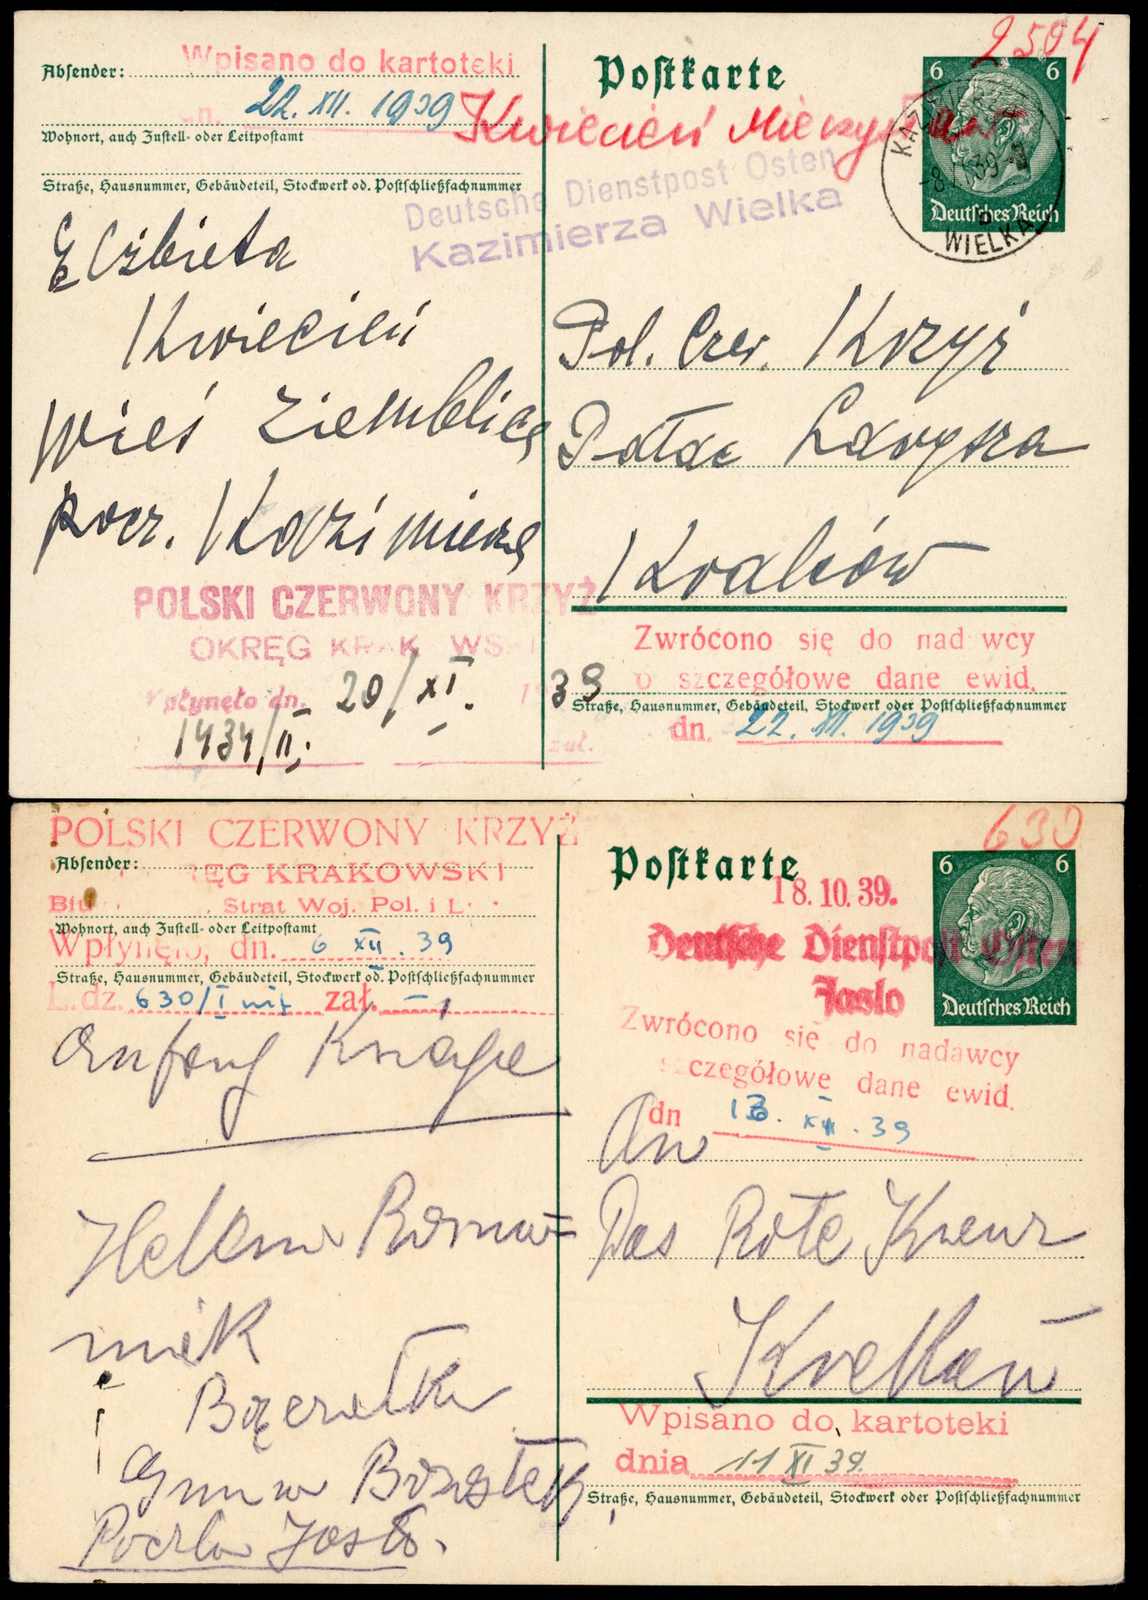 Wpisano do kartoteki
Absender:
dn. 22. XII. 1939
Wohnort, auch Zustell- oder Leitpostamt
Straße, Hausnummer, Gebäudeteil, Stockwerk od. Postschließfachnummer
Postkarte
2504
6 6
Kwiecień
Deutsches Reich
WIELKA
Deutsche Dienstpost Osten
Kazimierza Wielka
Elżbieta
Kwiecień
wieś Ziemblice
pocz. Kazimierza
Pol. Czer. Krzyż
Pałac Larysza
Kraków
POLSKI CZERWONY KRZYŻ
OKRĘG KRAK WSKI
Wpłynęło dn. 20/XI. 1939
1434/II.
zał.
Zwrócono się do nad wcy
o szczegółowe dane ewid.
Straße, Hausnummer, Gebäudeteil, Stockwerk oder Postschließfachnummer
dn. 22. XII. 1939
POLSKI CZERWONY KRZYŻ
Absender:
RĘG KRAKOWSKI
Strat Woj. Pol. i
Wohnort, auch Zustell- oder Leitpostamt
Wpłynęło, dn. 6 XII. 39
Straße, Hausnummer, Gebäudeteil, Stockwerk od. Postschließfachnummer
L. dz. 630/I zał. –
630
Postkarte
6 6
18.10.39.
Deutsche Dienstpost Osten
Jaslo
Deutsches Reich
Zwrócono się do nadawcy
szczegółowe dane ewid.
dn 13. XII. 39
An
Das Rote Kreuz
Krakau
Helena
Gmina
Poczta Jasło.
Wpisano do kartoteki
dnia 11 XI 39.
Straße, Hausnummer, Gebäudeteil, Stockwerk oder Postschließfachnummer